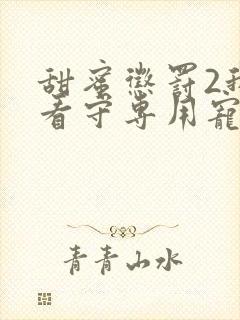 甜蜜懲罰2
看守専用寵
青青山水